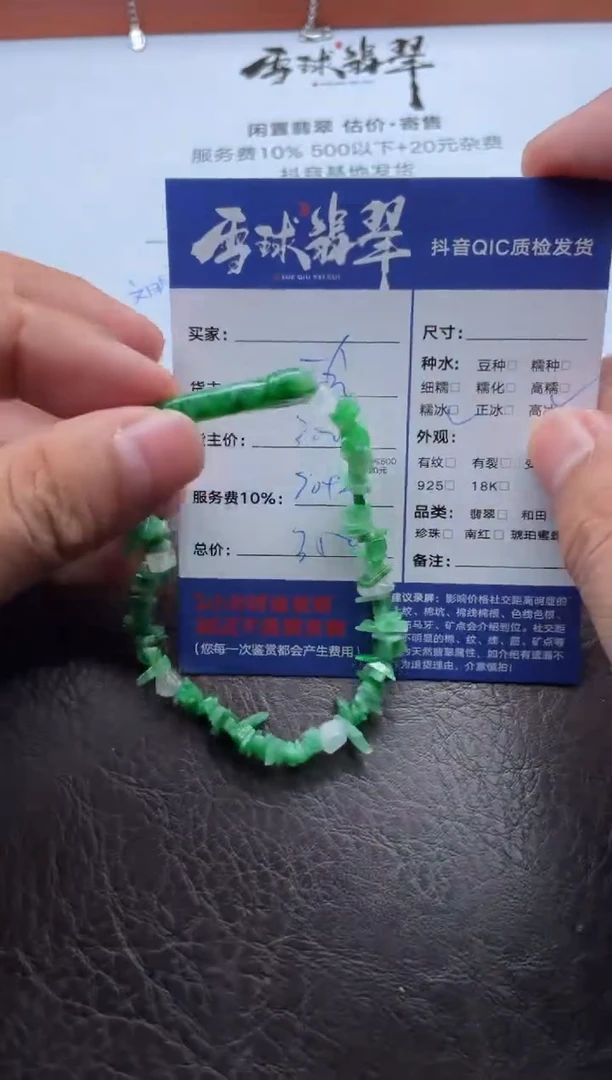 雪球翡翠
闲置翡翠 估价·寄售
服务费10% 500以下+20元杂费
抖音基地发货
雪球翡翠
XUE QIU FEI CUI
抖音QIC质检发货
买家：
货主
货主价：
服务费10%：
总价：
（您每一次鉴赏都会产生费用）
尺寸：
种水： 豆种□ 糯种□
细糯□ 糯化□ 高糯□
糯冰□ 正冰□ 高冰
外观：
有纹□ 有裂□
925□ 18K□
品类： 翡翠□ 和田
珍珠□ 南红□ 琥珀蜜蜡
备注：
建议录屏：影响价格社交距离明显的
纹、棉坑、棉线棉根、色线色根、
马牙、矿点会介绍到位。社交距
不明显的棉、纹、线、
天然翡翠属性，如介绍有遗漏不
为退货理由，介意慎拍！